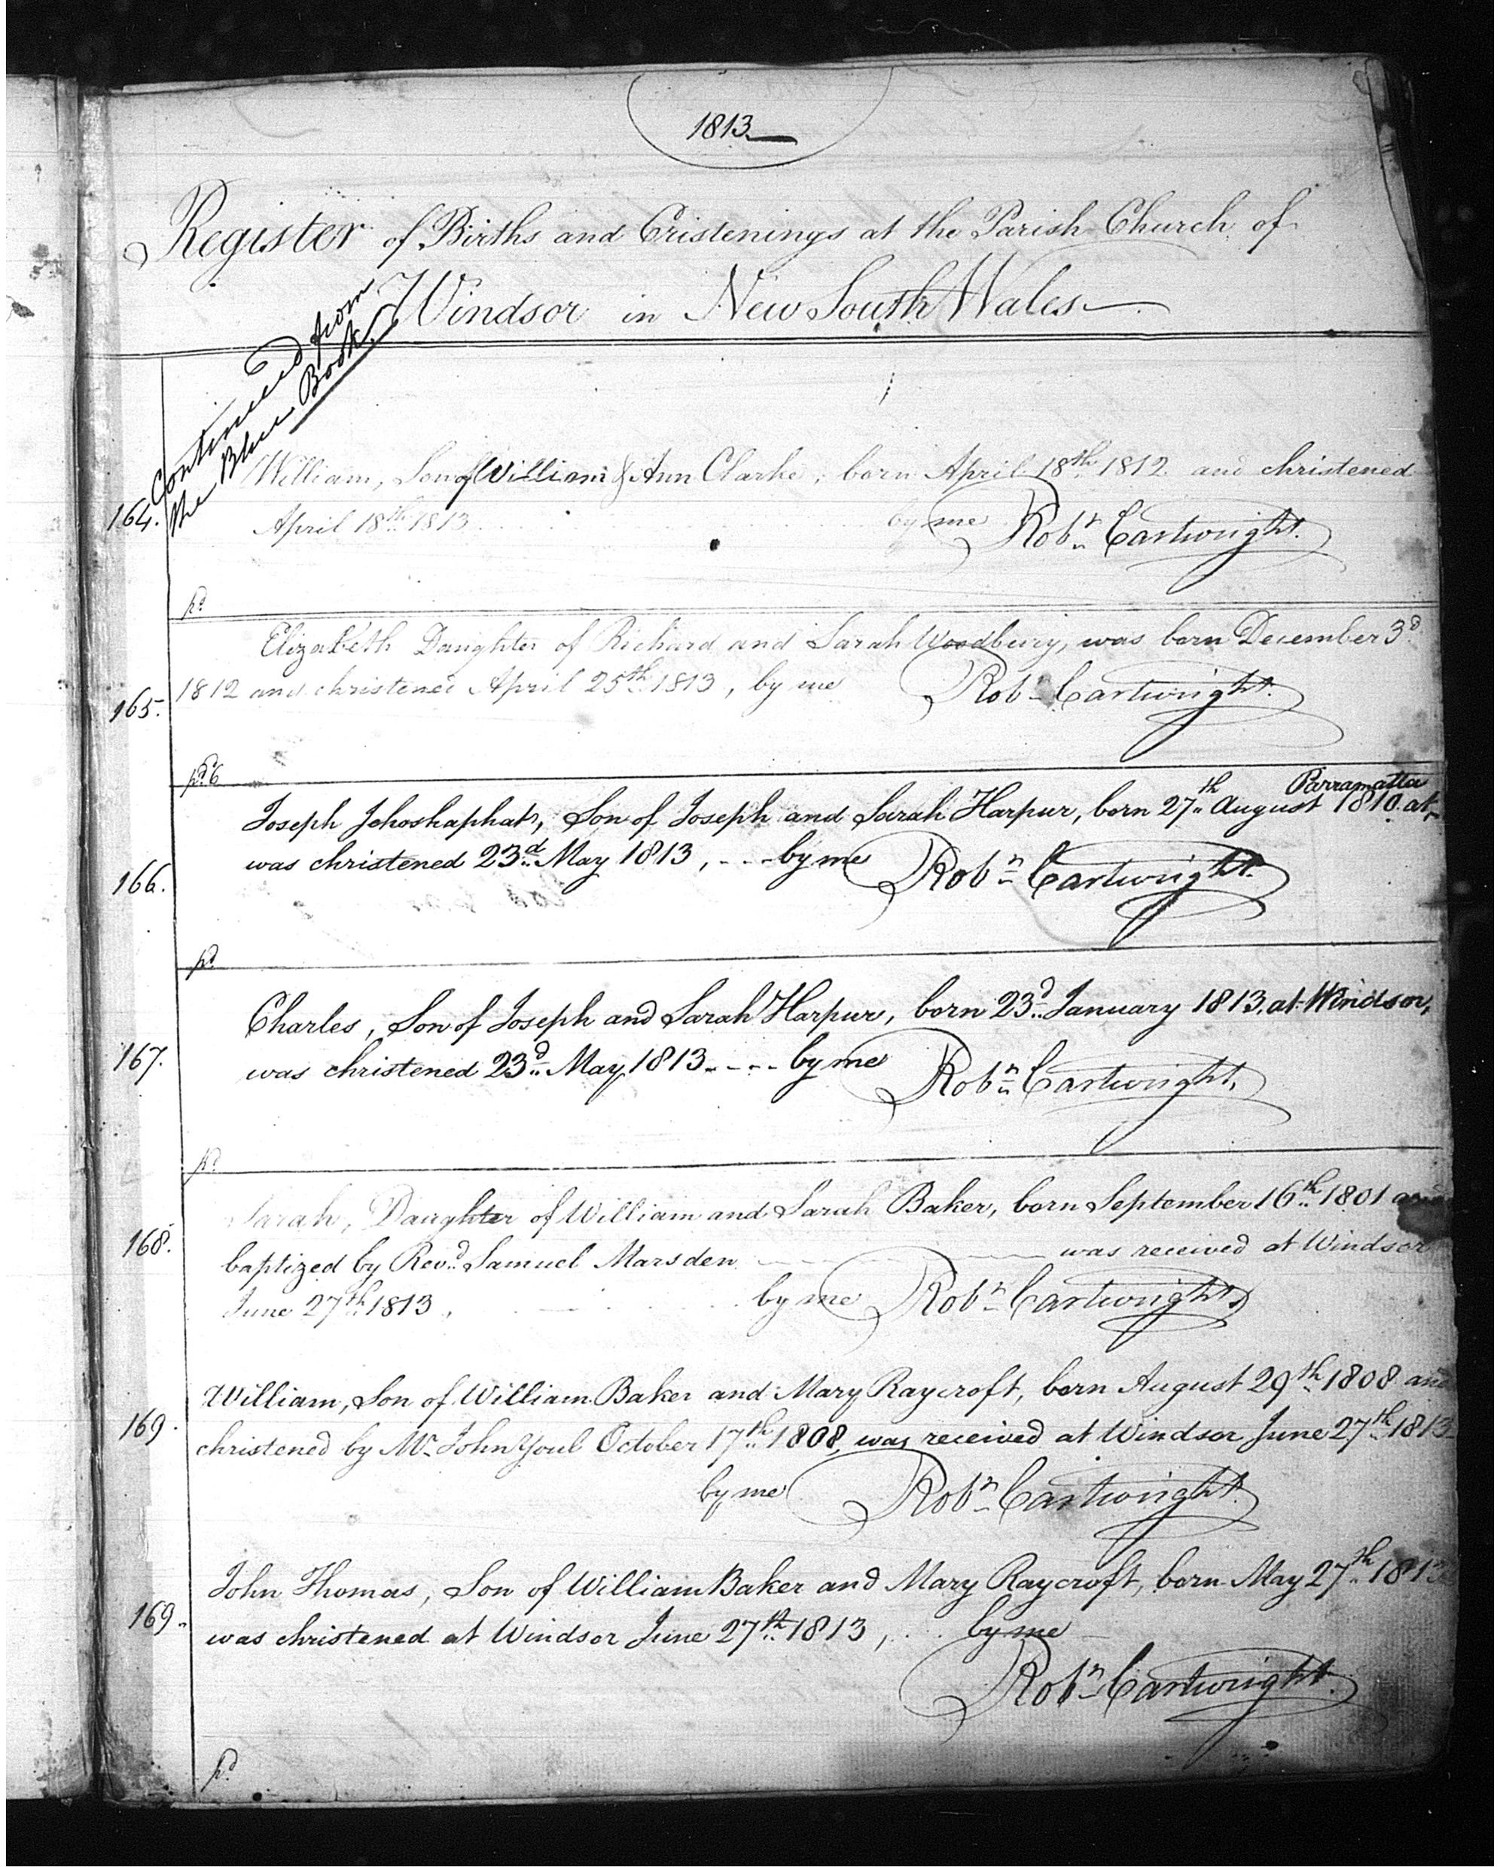 1813.
Register of Births and Cristenings at the Parish Church of
Windsor in New South Wales
Continued from
the Blue Book.
William, Son of William & Ann Clarke, born April 18th 1812 and christened
164. April 18th 1813 by me Robn Cartwright.
pd
Elizabeth Daughter of Richard and Sarah Woodbury, was born December 3d
165. 1812 and christened April 25th 1813, by me Robn Cartwright.
pd 6
Parramatta
Joseph Jehoshaphat, Son of Joseph and Sarah Harpur, born 27th August 1810. at
166. was christened 23d May 1813, - - - by me Robn Cartwright.
pd
Charles, Son of Joseph and Sarah Harpur, born 23d January 1813. at Windsor,
167. was christened 23d May 1813. - - - by me Robn Cartwright,
pd
Sarah, Daughter of William and Sarah Baker, born September 16th 1801 and
168. baptized by Revd Samuel Marsden was received at Windsor
June 27th 1813, by me Robn Cartwright
William, Son of William Baker and Mary Raycroft, born August 29th 1808 and
169. christened by Mr John Youl October 17th 1808, was received at Windsor June 27th 1813
by me Robn Cartwright.
John Thomas, Son of William Baker and Mary Raycroft, born May 27th 1813
169. was christened at Windsor June 27th 1813, by me
Robn Cartwright.
pd